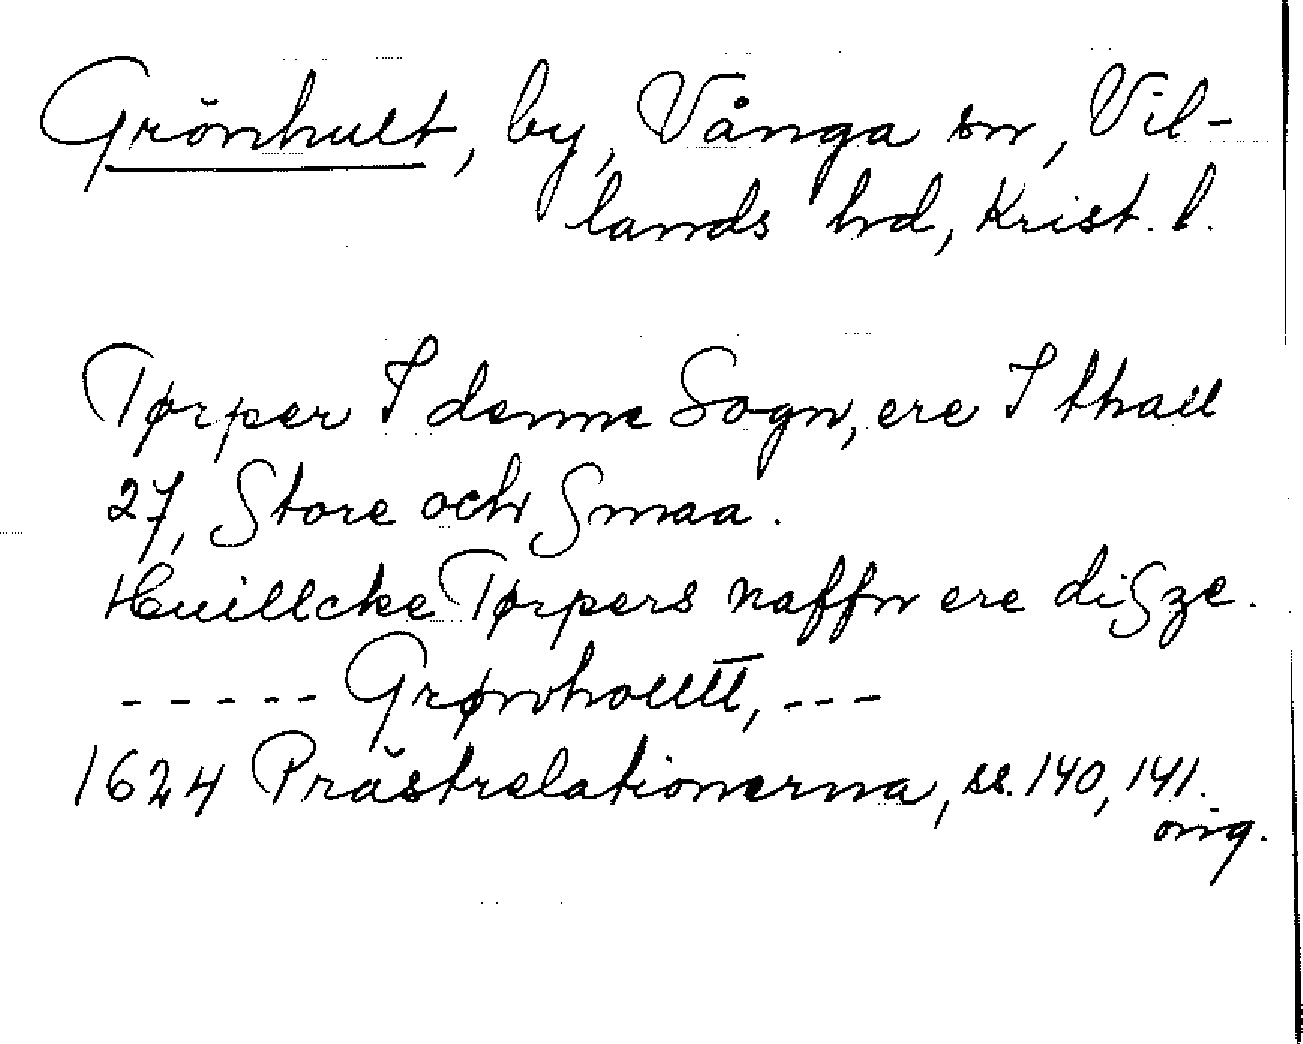 Grönhult, by, Vånga sn, Vil-
lands hrd, Krist. l.
Tørper I denne Sogn, ere I thall
27, Store och Smaa.
Huillcke Tørpers naffn ere diSze.
- - - - - Grønholltt, - - -
1624 Prästrelationerna, ss. 140, 141.
orig.